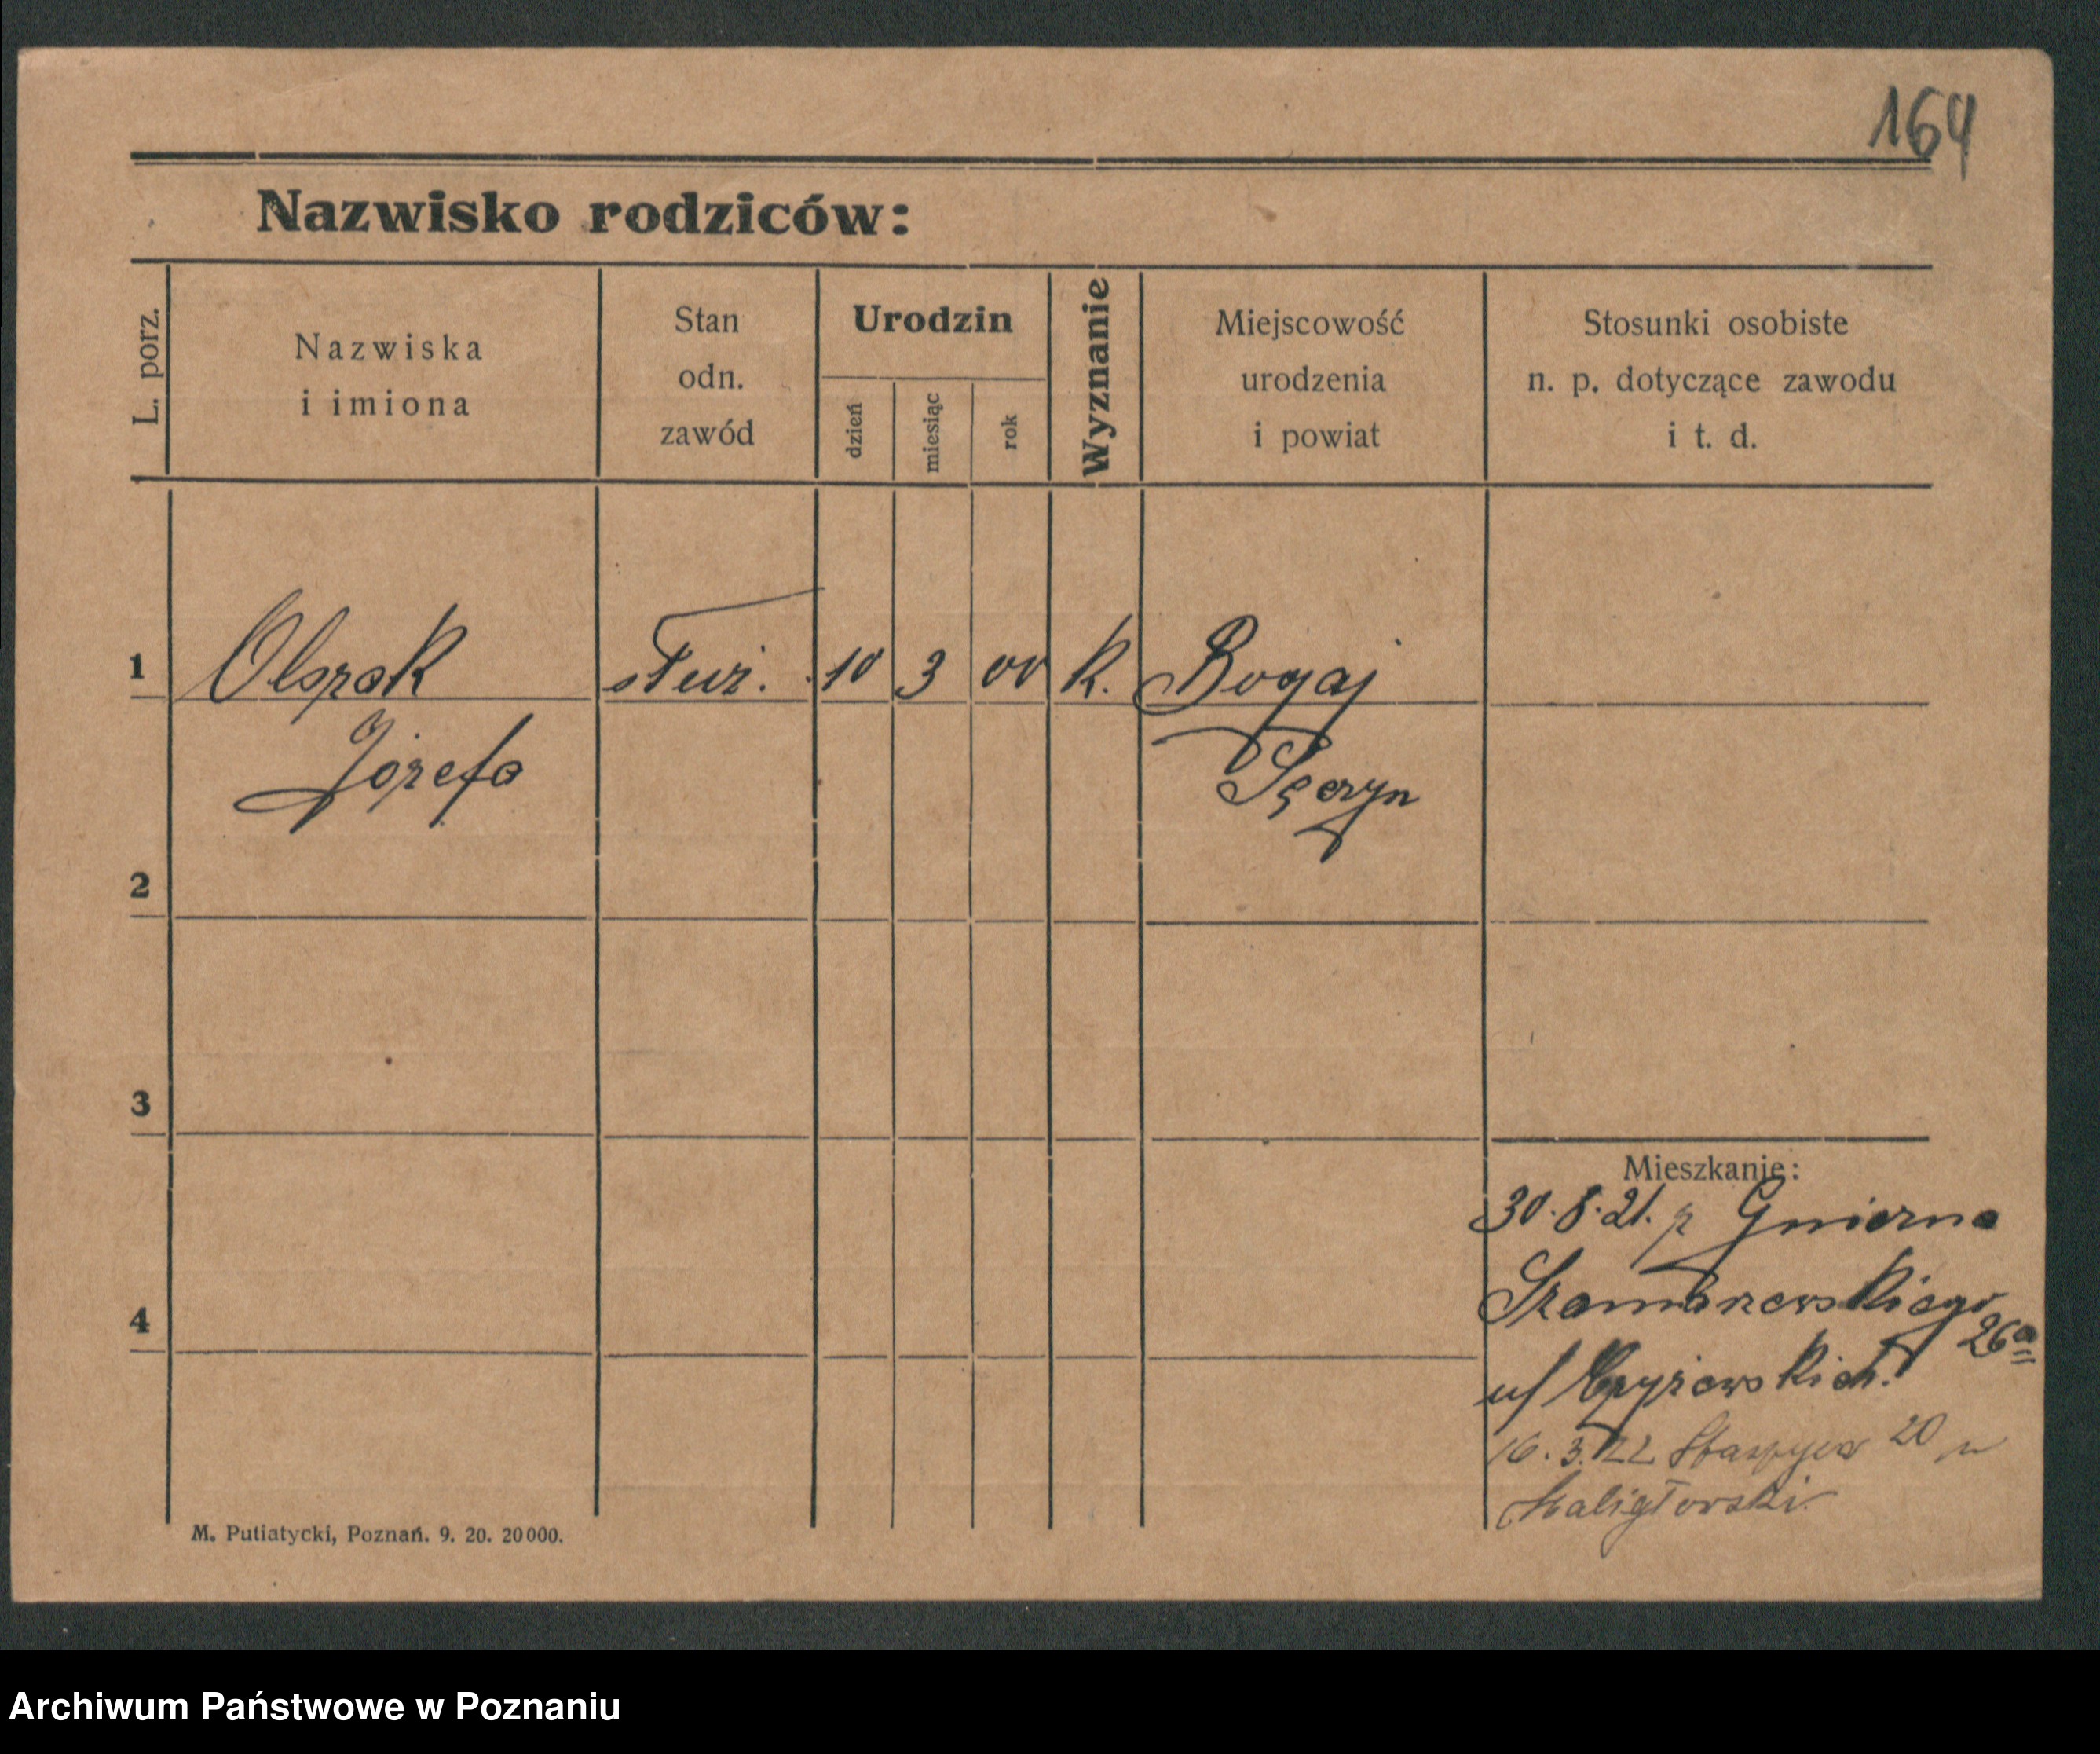 164
Nazwisko rodziców:
L. porz.
Nazwiska
i imiona
Stan
odn.
zawód
Urodzin
dzień
miesiąc
rok
Wyznanie
Miejscowość
urodzenia
i powiat
Stosunki osobiste
n. p. dotyczące zawodu
i t. d.
1
Olszak
Józefa
służ.
10
3
00
k.
Bogaj
2
3
4
Mieszkanie:
30.8.21. z Gniezna
Szamarzewskiego
26a
u/ Czyżewskich.
16.3.22 20
M. Putiatycki, Poznań. 9. 20. 20000.
Archiwum Państwowe w Poznaniu